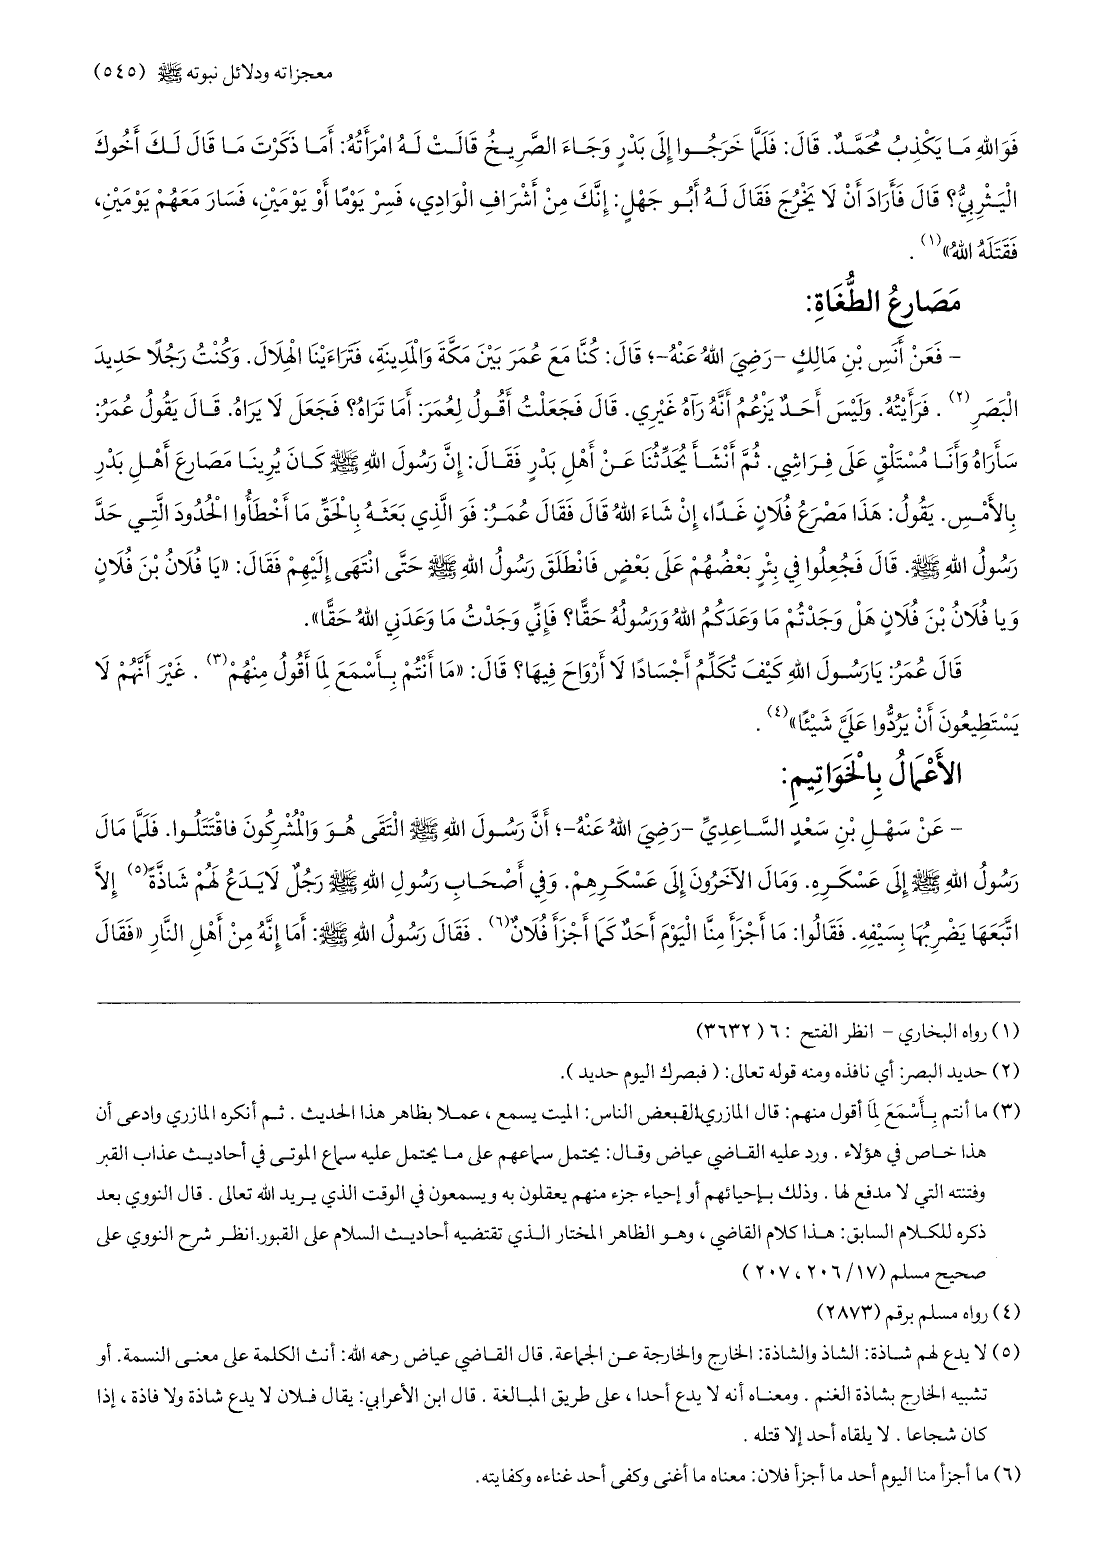 معجزاته ودلائل نبوته ﷺ (٥٤٥)
فَوَاللهِ مَا يَكْذِبُ مُحَمَّدٌ. قَالَ: فَلَمَّا خَرَجُوا إِلَى بَدْرٍ وَجَاءَ الصَّرِيخُ قَالَتْ لَهُ امْرَأَتُهُ: أَمَا ذَكَرْتَ مَا قَالَ لَكَ أَخُوكَ
الْيَثْرِبِيُّ؟ قَالَ فَأَرَادَ أَنْ لَا يَخْرُجَ فَقَالَ لَهُ أَبُو جَهْلٍ: إِنَّكَ مِنْ أَشْرَافِ الْوَادِي، فَسِرْ يَوْمًا أَوْ يَوْمَيْنِ، فَسَارَ مَعَهُمْ يَوْمَيْنِ،
فَقَتَلَهُ اللهُ»(١) .
مَصَارِعُ الطُّغَاةِ:
– فَعَنْ أَنَسِ بْنِ مَالِكٍ –رَضِيَ اللهُ عَنْهُ–؛ قَالَ: كُنَّا مَعَ عُمَرَ بَيْنَ مَكَّةَ وَالْمَدِينَةِ، فَتَرَاءَيْنَا الْهِلَالَ. وَكُنْتُ رَجُلًا حَدِيدَ
الْبَصَرِ(٢) . فَرَأَيْتُهُ. وَلَيْسَ أَحَدٌ يَزْعُمُ أَنَّهُ رَآهُ غَيْرِي. قَالَ فَجَعَلْتُ أَقُولُ لِعُمَرَ: أَمَا تَرَاهُ؟ فَجَعَلَ لَا يَرَاهُ. قَالَ يَقُولُ عُمَرُ:
سَأَرَاهُ وَأَنَا مُسْتَلْقٍ عَلَى فِرَاشِي. ثُمَّ أَنْشَأَ يُحَدِّثُنَا عَنْ أَهْلِ بَدْرٍ فَقَالَ: إِنَّ رَسُولَ اللهِ ﷺ كَانَ يُرِينَا مَصَارِعَ أَهْلِ بَدْرٍ
بِالأَمْسِ. يَقُولُ: هَذَا مَصْرَعُ فُلَانٍ غَدًا، إِنْ شَاءَ اللهُ قَالَ فَقَالَ عُمَرُ: فَوَ الَّذِي بَعَثَهُ بِالْحَقِّ مَا أَخْطَأُوا الْحُدُودَ الَّتِي حَدَّ
رَسُولُ اللهِ ﷺ. قَالَ فَجُعِلُوا فِي بِئْرٍ بَعْضُهُمْ عَلَى بَعْضٍ فَانْطَلَقَ رَسُولُ اللهِ ﷺ حَتَّى انْتَهَى إِلَيْهِمْ فَقَالَ: «يَا فُلَانُ بْنَ فُلَانٍ
وَيا فُلَانُ بْنَ فُلَانٍ هَلْ وَجَدْتُمْ مَا وَعَدَكُمُ اللهُ وَرَسُولُهُ حَقًّا؟ فَإِنِّي وَجَدْتُ مَا وَعَدَنِي اللهُ حَقًّا».
قَالَ عُمَرُ: يَارَسُولَ اللهِ كَيْفَ تُكَلِّمُ أَجْسَادًا لَا أَرْوَاحَ فِيهَا؟ قَالَ: «مَا أَنْتُمْ بِأَسْمَعَ لِمَا أَقُولُ مِنْهُمْ(٣) . غَيْرَ أَنَّهُمْ لَا
يَسْتَطِيعُونَ أَنْ يَرُدُّوا عَلَيَّ شَيْئًا»(٤) .
الأَعْمَالُ بِالْخَوَاتِيمِ:
– عَنْ سَهْلِ بْنِ سَعْدٍ السَّاعِدِيِّ –رَضِيَ اللهُ عَنْهُ–؛ أَنَّ رَسُولَ اللهِ ﷺ الْتَقَى هُوَ وَالْمُشْرِكُونَ فاقْتَتَلُوا. فَلَمَّا مَالَ
رَسُولُ اللهِ ﷺ إِلَى عَسْكَرِهِ. وَمَالَ الآخَرُونَ إِلَى عَسْكَرِهِمْ. وَفِي أَصْحَابِ رَسُولِ اللهِ ﷺ رَجُلٌ لَايَدَعُ لَهُمْ شَاذَّةً(٥) إِلاَّ
اتَّبَعَهَا يَضْرِبُهَا بِسَيْفِهِ. فَقَالُوا: مَا أَجْزَأَ مِنَّا الْيَوْمَ أَحَدٌ كَمَا أَجْزَأَ فُلَانٌ(٦) . فَقَالَ رَسُولُ اللهِ ﷺ: أَمَا إِنَّهُ مِنْ أَهْلِ النَّارِ «فَقَالَ
(١) رواه البخاري – انظر الفتح : ٦ ( ٣٦٣٢)
(٢) حديد البصر: أي نافذه ومنه قوله تعالى: ( فبصرك اليوم حديد ).
(٣) ما أنتم بِأَسْمَعَ لِمَا أقول منهم: قال المازري: الناس: الميت يسمع ، عملا بظاهر هذا الحديث . ثم أنكره المازري وادعى أن
هذا خاص في هؤلاء . ورد عليه القاضي عياض وقال: يحتمل سماعهم على ما يحتمل عليه سماع الموتى في أحاديث عذاب القبر
وفتنته التي لا مدفع لها . وذلك بإحيائهم أو إحياء جزء منهم يعقلون به ويسمعون في الوقت الذي يريد الله تعالى . قال النووي بعد
ذكره للكلام السابق: هذا كلام القاضي ، وهو الظاهر المختار الذي تقتضيه أحاديث السلام على القبور.انظر شرح النووي على
صحيح مسلم (١٧/ ٢٠٦ ، ٢٠٧ )
(٤) رواه مسلم برقم (٢٨٧٣)
(٥) لا يدع لهم شاذة: الشاذ والشاذة: الخارج والخارجة عن الجماعة. قال القاضي عياض رحمه الله: أنث الكلمة على معنى النسمة. أو
تشبيه الخارج بشاذة الغنم . ومعناه أنه لا يدع أحدا ، على طريق المبالغة . قال ابن الأعرابي: يقال فلان لا يدع شاذة ولا فاذة ، إذا
كان شجاعا . لا يلقاه أحد إلا قتله .
(٦) ما أجزأ منا اليوم أحد ما أجزأ فلان: معناه ما أغنى وكفى أحد غناءه وكفايته.